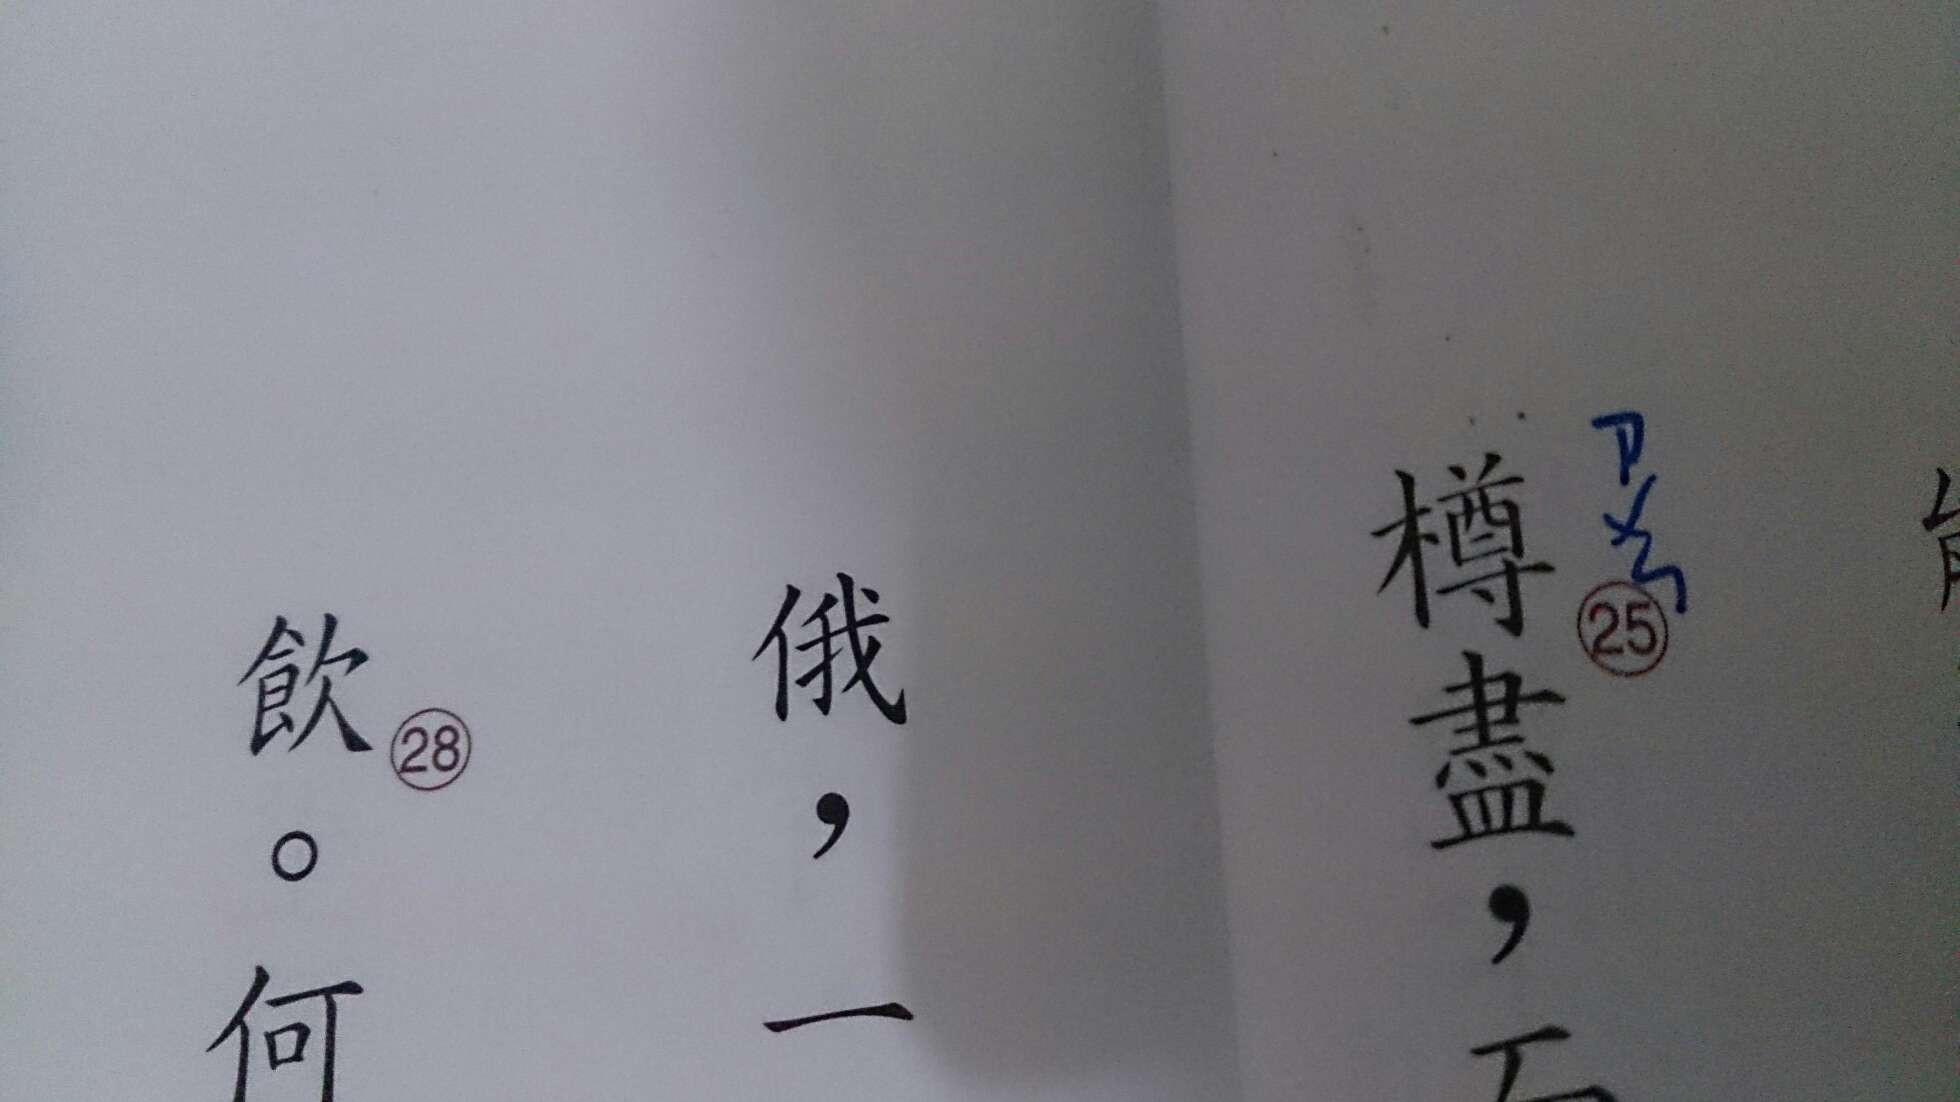 樽㉕盡，
ㄗㄨㄣ
俄，一
飲㉘。何